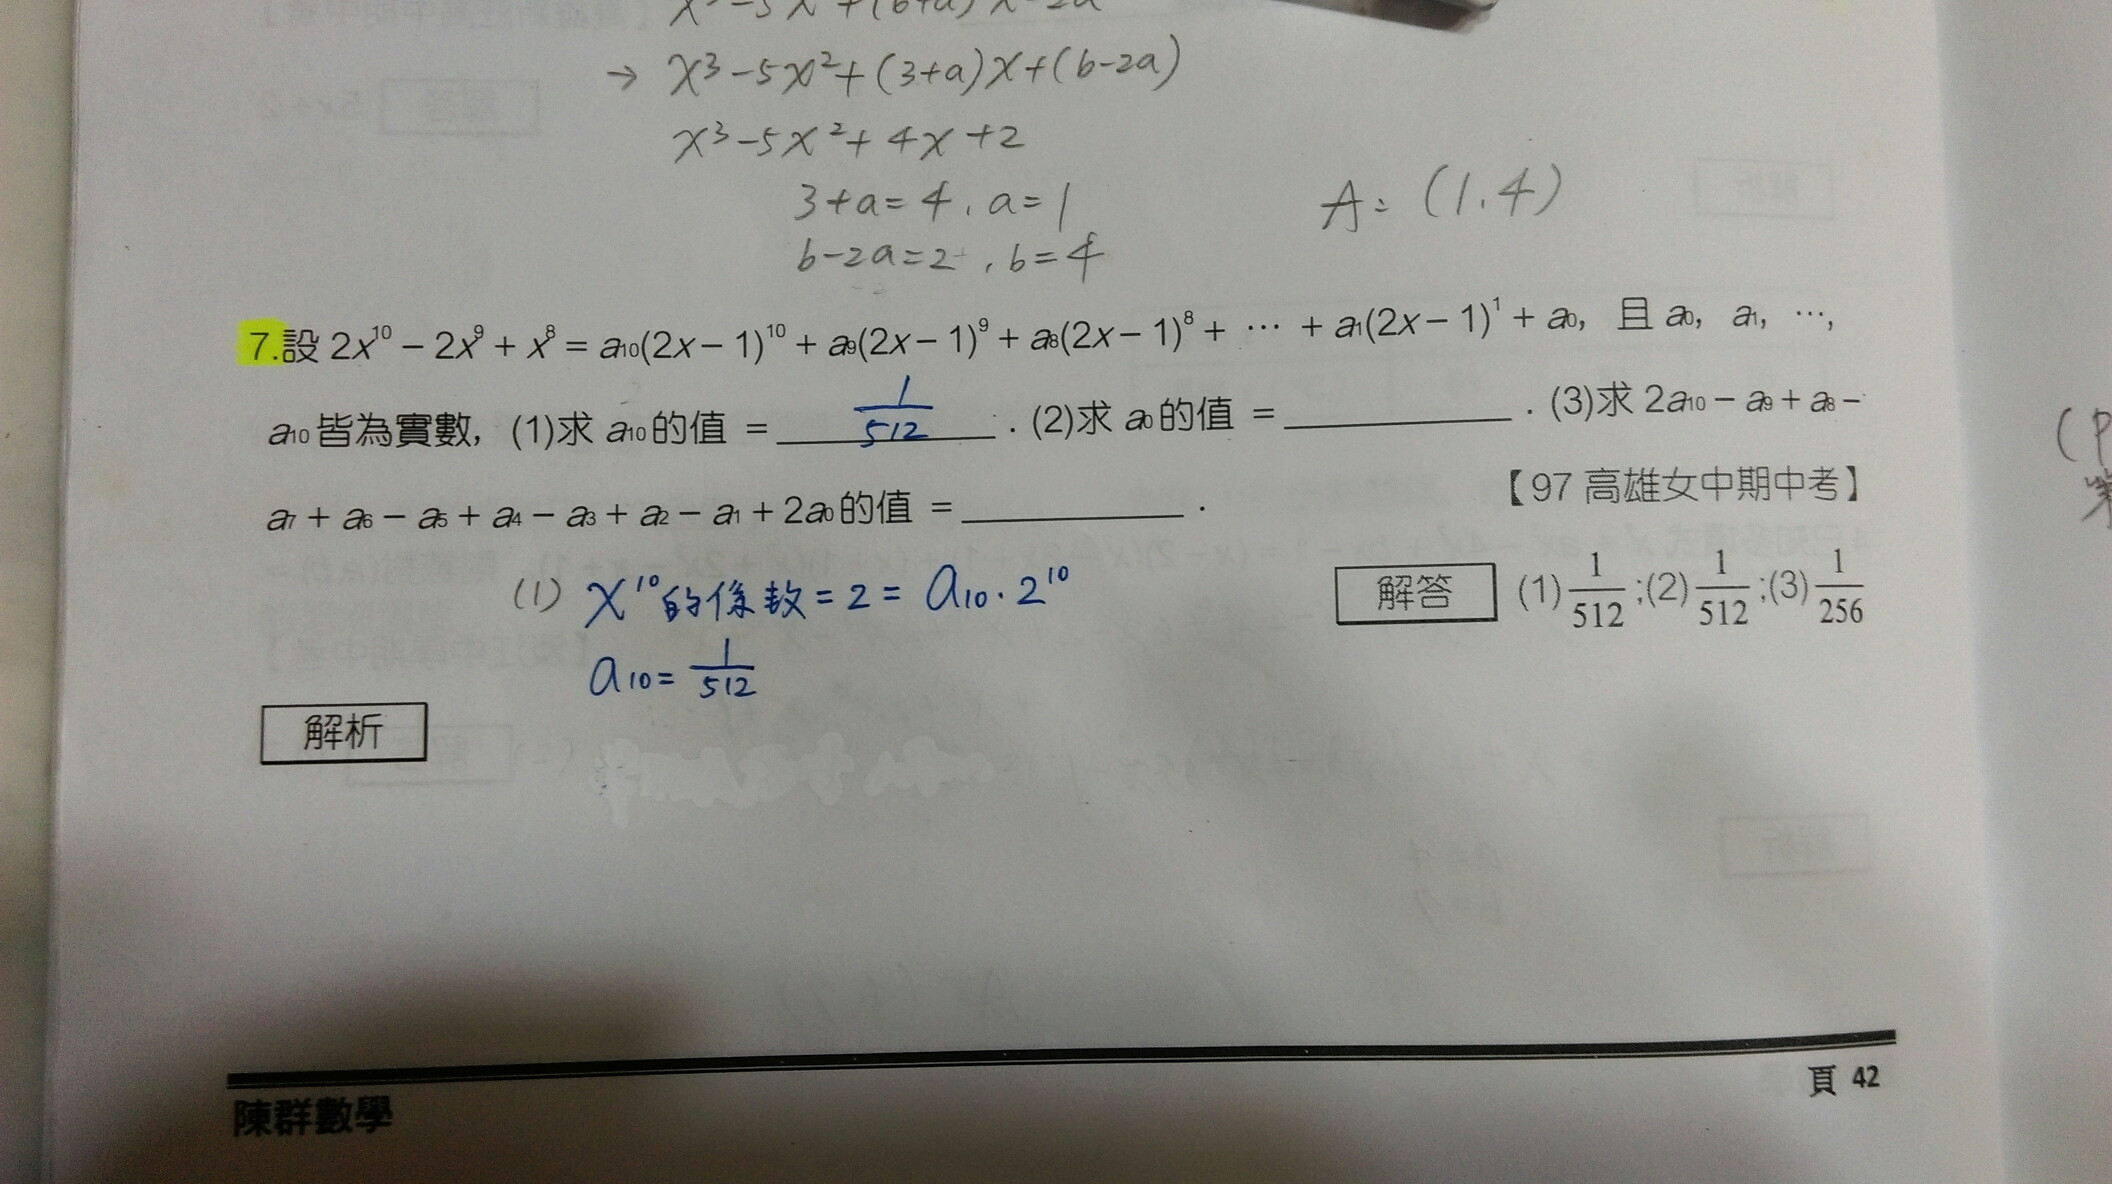 x³-5x²+(6+a)x-2a
→ x³-5x²+(3+a)x+(b-2a)
x³-5x²+4x+2
3+a=4, a=1
A=(1.4)
b-2a=2, b=4
7.設 2x¹⁰ − 2x⁹ + x⁸ = a₁₀(2x − 1)¹⁰ + a₉(2x − 1)⁹ + a₈(2x − 1)⁸ + ⋯ + a₁(2x − 1)¹ + a₀, 且 a₀, a₁, ⋯,
a₁₀ 皆為實數, (1)求 a₁₀ 的值 = 1/512 . (2)求 a₀ 的值 = ________ . (3)求 2a₁₀ − a₉ + a₈ −
a₇ + a₆ − a₅ + a₄ − a₃ + a₂ − a₁ + 2a₀ 的值 = ________ .
【97 高雄女中期中考】
(1) x¹⁰的係数=2=a₁₀·2¹⁰
a₁₀=1/512
解答 (1)1/512;(2)1/512;(3)1/256
解析
陳群數學
頁 42